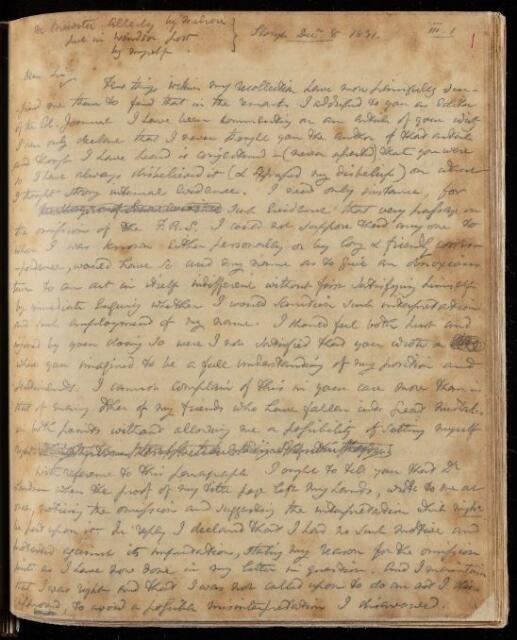 Dr Brewster Allerly by Nelson
put in Windsor post
by myself
Slough Dec^r 8 1831.
III. 1
1
Dear Sir,
Few things within my recollection have more painfully sur-
prised me than to find that in the remarks I addressed to you as Editor
of the Ed. Journal I have been commenting on an article of your own.
I can only declare that I never thought you the author of that article
and though I have heard it conjectured - (never asserted) that you were
so I have always disbelieved it (& expressed my disbelief) on what
I thought strong internal evidence. I need only instance, for
such evidence that very passage on
the omission of the F.R.S. I could not suppose that any one to
whom I was known either personally or by long & friendly corres-
pondence, would have so used my name as to give an obnoxious
turn to an act in itself indifferent without first satisfying himself
by immediate enquiry whether I would sanction such interpretation
and such employment of my name. I should feel both hurt and
by your doing so were I not satisfied that you wrote
what you imagined to be a full understanding of my position and
sentiments. I cannot complain of this in your case more than in
that of many other of my friends who have fallen into great mistakes
on both points without allowing me a possibility of setting myself
right
With reference to this paragraph I ought to tell you that Dr
Lardner when the proof of my title page left my hands, wrote to me at
once, noticing the omission and suggesting the interpretation which might
be put upon it. In reply I declared that I had no such motive and
protested against its imputation, stating my reason for the omission
just as I have now done in my letter in question. And I maintain
that I was right and that I was not called upon to do an act I dis-
approved, to avoid a possible misinterpretation I disavowed.